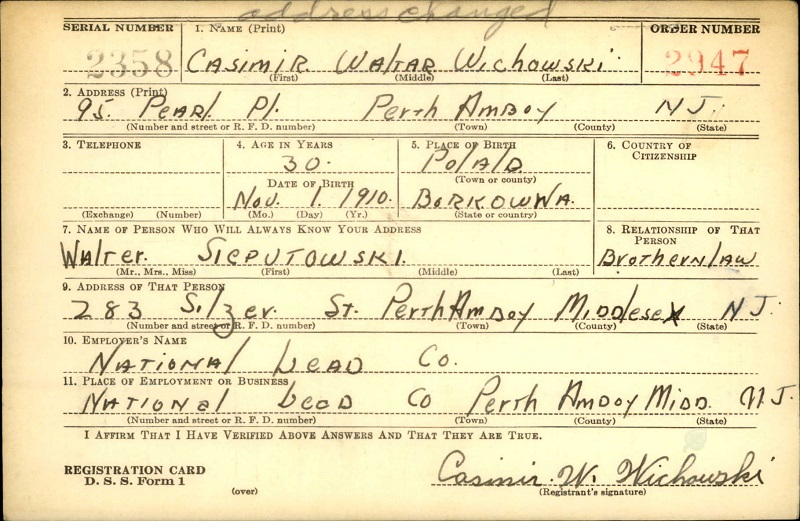 address changed
SERIAL NUMBER 1. NAME (Print) ORDER NUMBER
2358 CASIMIR WALTAR WICHOWSKI 2947
(First) (Middle) (Last)
2. ADDRESS (Print)
95. PEARL Pl. PERTH AMBOY NJ.
(Number and street or R. F. D. number) (Town) (County) (State)
3. TELEPHONE 4. AGE IN YEARS 5. PLACE OF BIRTH 6. COUNTRY OF CITIZENSHIP
30. POlAD
DATE OF BIRTH (Town or county)
Nov. 1. 1910. BORKOWNA.
(Exchange) (Number) (Mo.) (Day) (Yr.) (State or county)
7. NAME OF PERSON WHO WILL ALWAYS KNOW YOUR ADDRESS 8. RELATIONSHIP OF THAT PERSON
WALTER. SIEPUTOWSKI. Brothernlaw
(Mr., Mrs., Miss) (First) (Middle) (Last)
9. ADDRESS OF THAT PERSON
283 Silzer. St. PERTH AMBOY MIDDlESEX NJ.
(Number and street or R. F. D. number) (Town) (County) (State)
10. EMPLOYER'S NAME
NATIONAl LEAD Co.
11. PLACE OF EMPLOYMENT OR BUSINESS
NATIONal LEOD Co PERTH AMBOY MIDD. NJ.
(Number and street or R. F. D. number) (Town) (County) (State)
I AFFIRM THAT I HAVE VERIFIED ABOVE ANSWERS AND THAT THEY ARE TRUE.
REGISTRATION CARD
D. S. S. Form 1 Casimir. W. Wichowski
(over) (Registrant's signature)